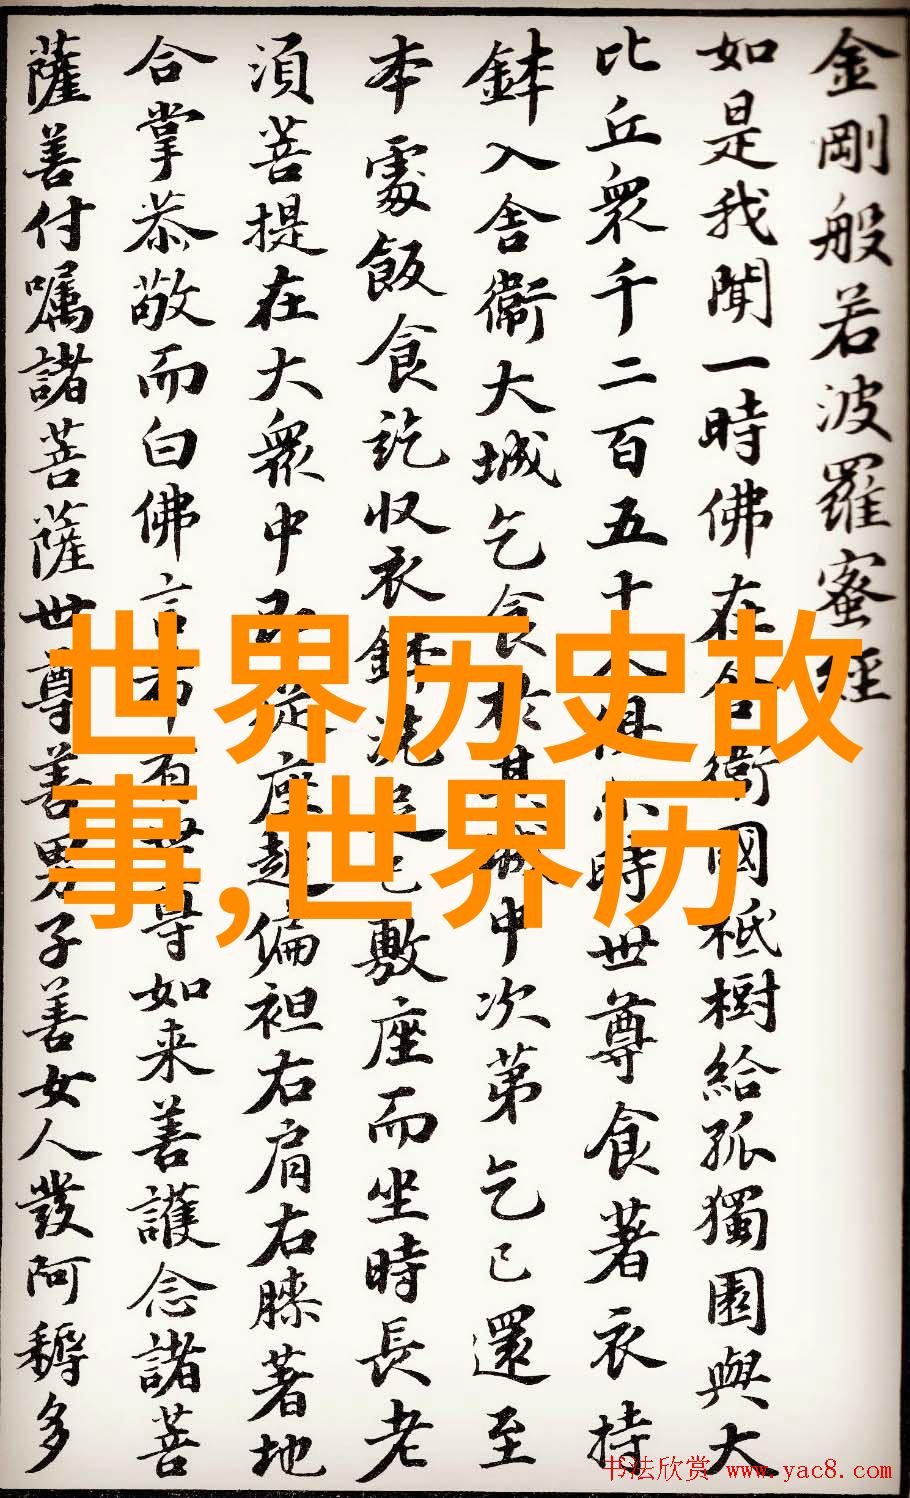 金剛般若波羅蜜經
如是我聞一時佛在舍衛國祇樹給孤獨園與大
比丘衆千二百五十人俱尒時世尊食著衣持
鉢入舍衛大城乞食於其城中次第乞已還至
本處飯食訖収衣鉢洗足已敷座而坐時長老
湏菩提在大衆中即從座起偏袒右肩右膝著地
合掌恭敬而白佛言希有世尊如来善護念諸菩
薩善付嘱諸菩薩世尊善男子善女人發阿耨多
世界历史故
事,世界历
书法欣赏 www.yac8.com